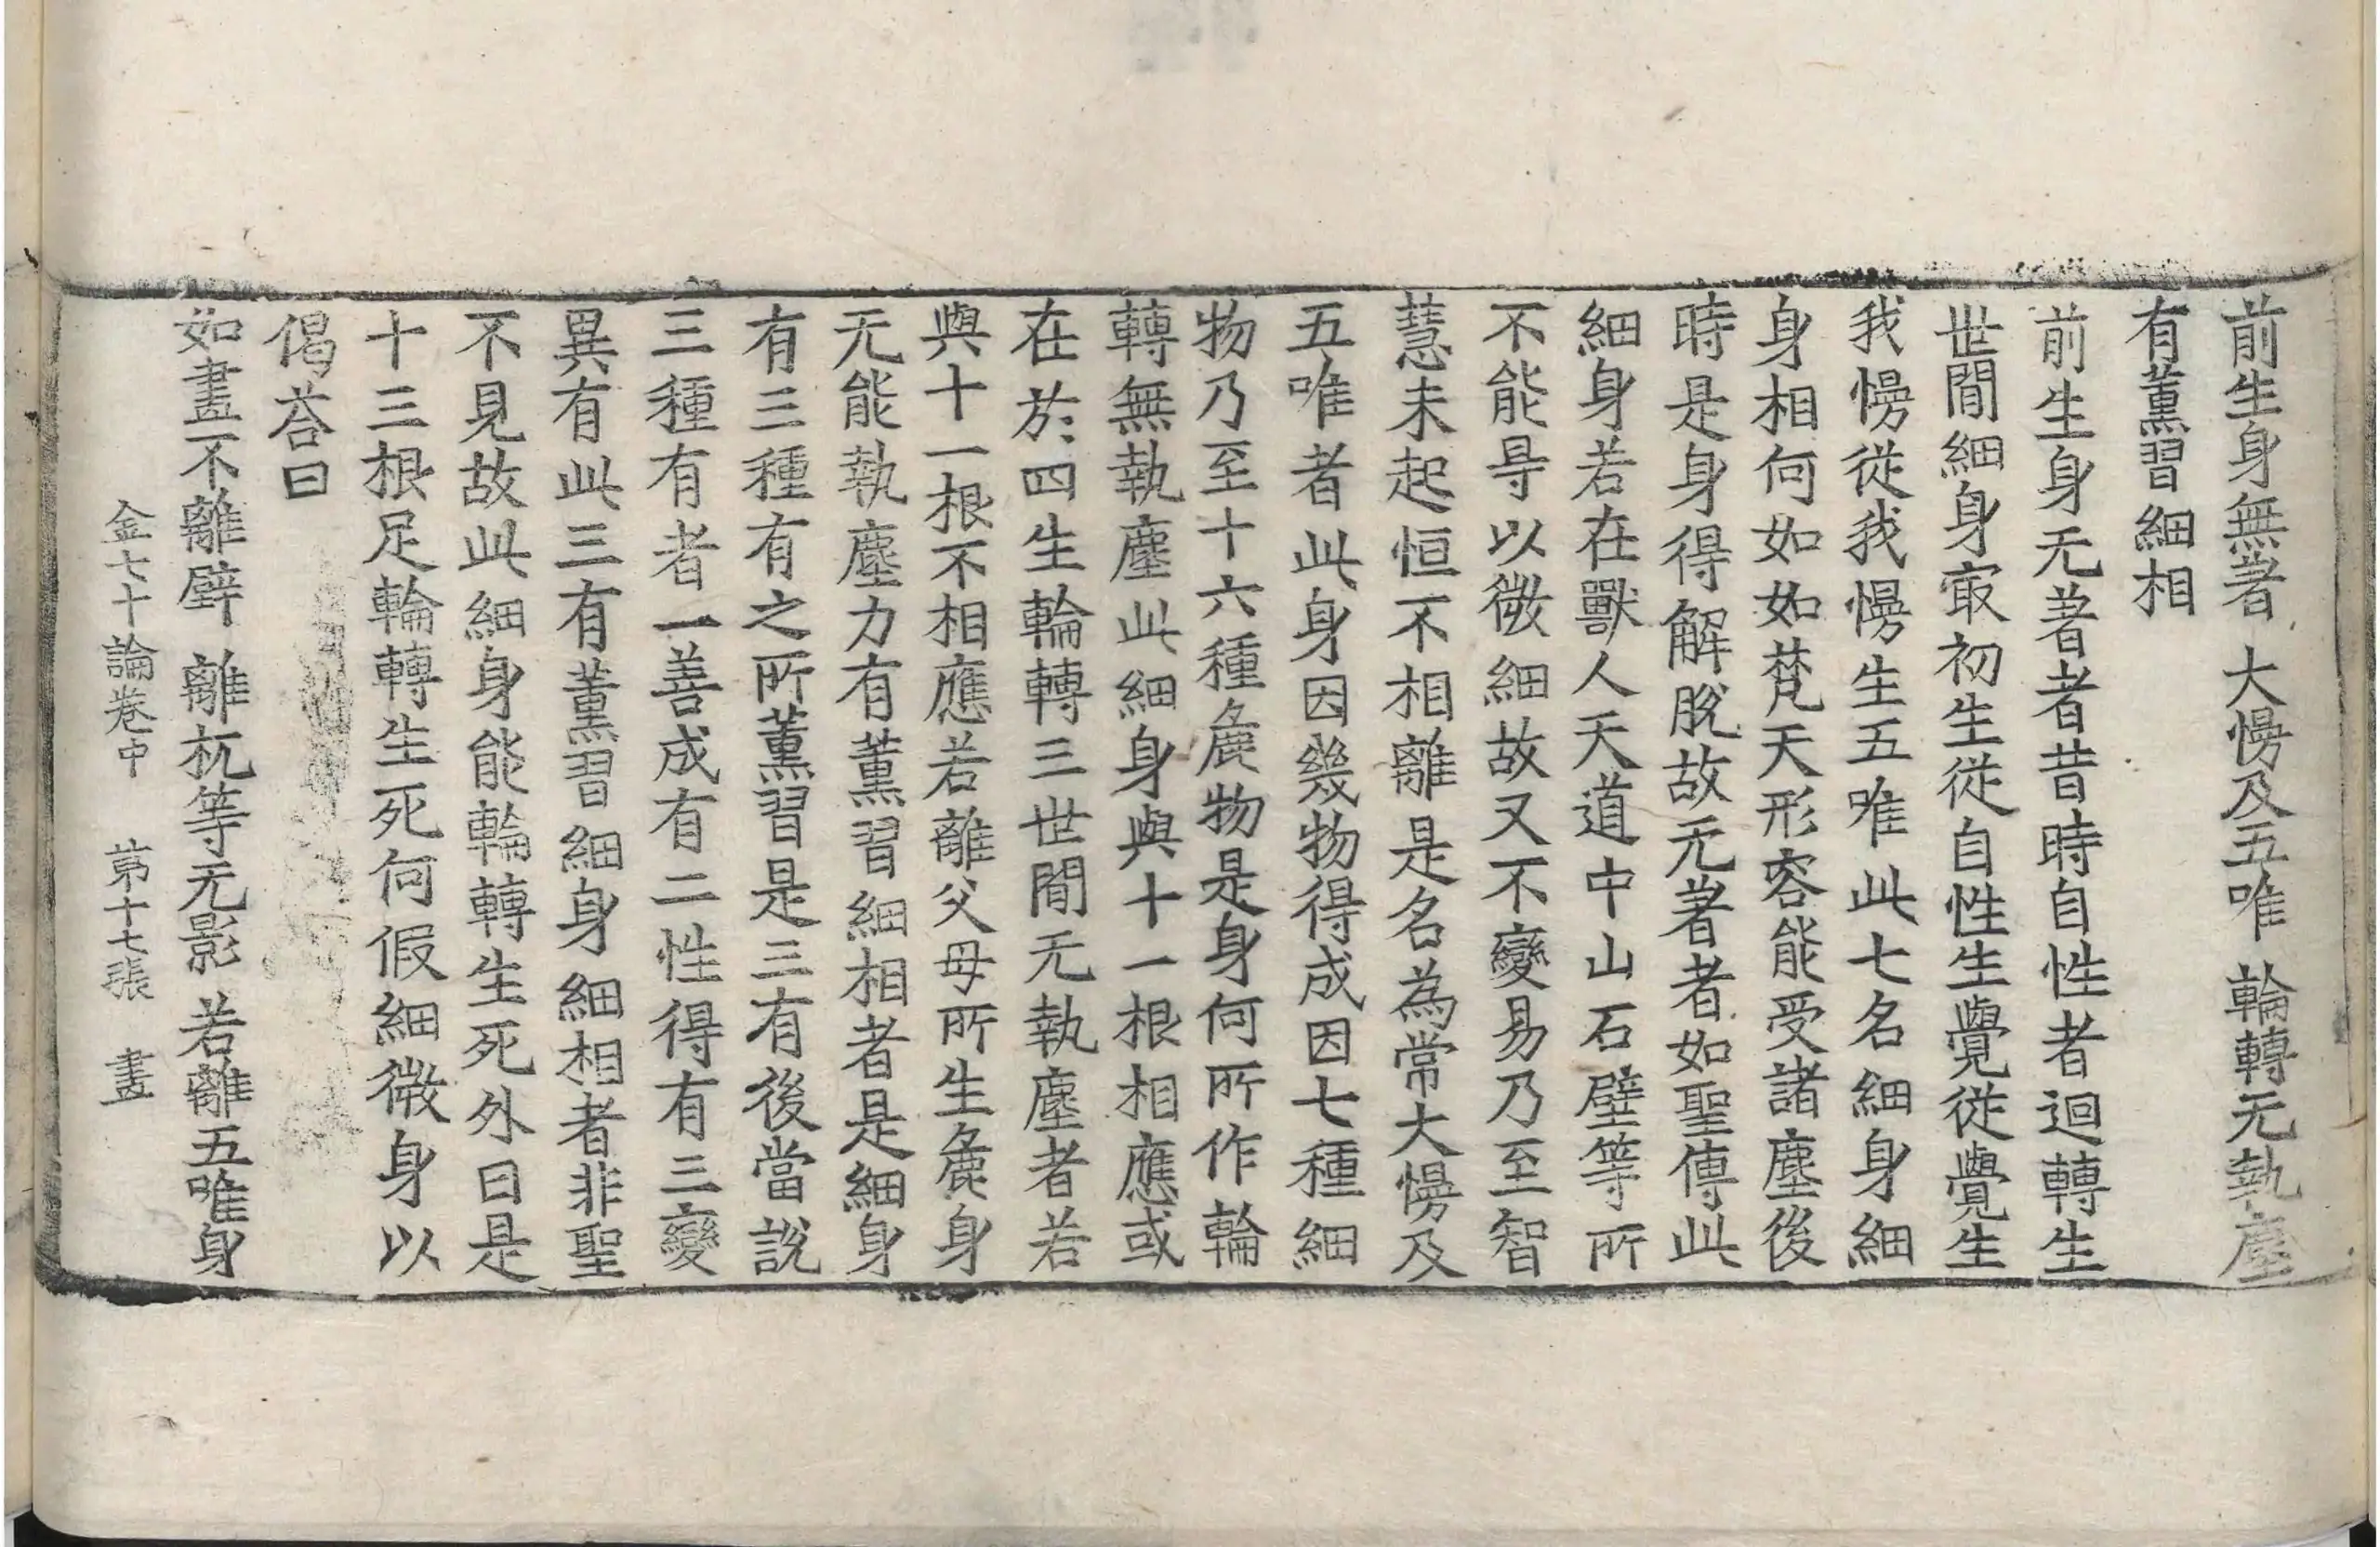 前生身無著 大㦬及五唯 輪轉无執塵
有薰習細相
前生身无著者昔時自性者迴轉生
世間細身㝡初生從自性生覺從覺生
我㦬從我㦬生五唯此七名細身細
身相何如如梵天形容能受諸塵後
時是身得解脫故无著者如聖傳此
細身若在獸人天道中山石壁等所
不能㝵以微細故又不變易乃至智
慧未起恒不相離是名為常大㦬及
五唯者此身因幾物得成因七種細
物乃至十六種麁物是身何所作輪
轉無執塵此細身與十一根相應或
在於四生輪轉三世間无執塵者若
與十一根不相應若離父母所生麁身
无能執塵力有薰習細相者是細身
有三種有之所薰習是三有後當說
三種有者一善成有二性得有三變
異有此三有薰習細身細相者非聖
不見故此細身能輪轉生死外曰是
十三根足輪轉生死何假細微身以
偈荅曰
如畫不離壁 離杌等无影 若離五唯身
金七十論卷中 苐十七張 畫